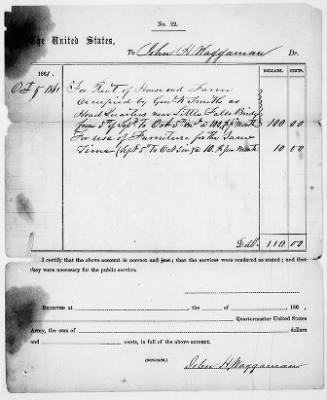 No. 22.
The United States,
To John H Waggaman Dr.
DOLLARS. CENTS.
186
Oct 5 1861 For Rent of House and Farm
occupied by Gen W Smith as
Head Quarters near Little Falls Bridge
from 5th of Sept to Oct 5th inc @ 100 $ pr Month 100 00
For use of Furniture for the Same
Time (Sept 5 to Oct 5 inc @ 10 $ per Month 10 00
Doll. 110 00
I certify that the above account is correct and just; that the services were rendered as stated; and that
they were necessary for the public service.
RECEIVED at the of 186 ,
of Quartermaster United States
Army, the sum of dollars
and cents, in full of the above account.
(DUPLICATE.)
John H Waggaman